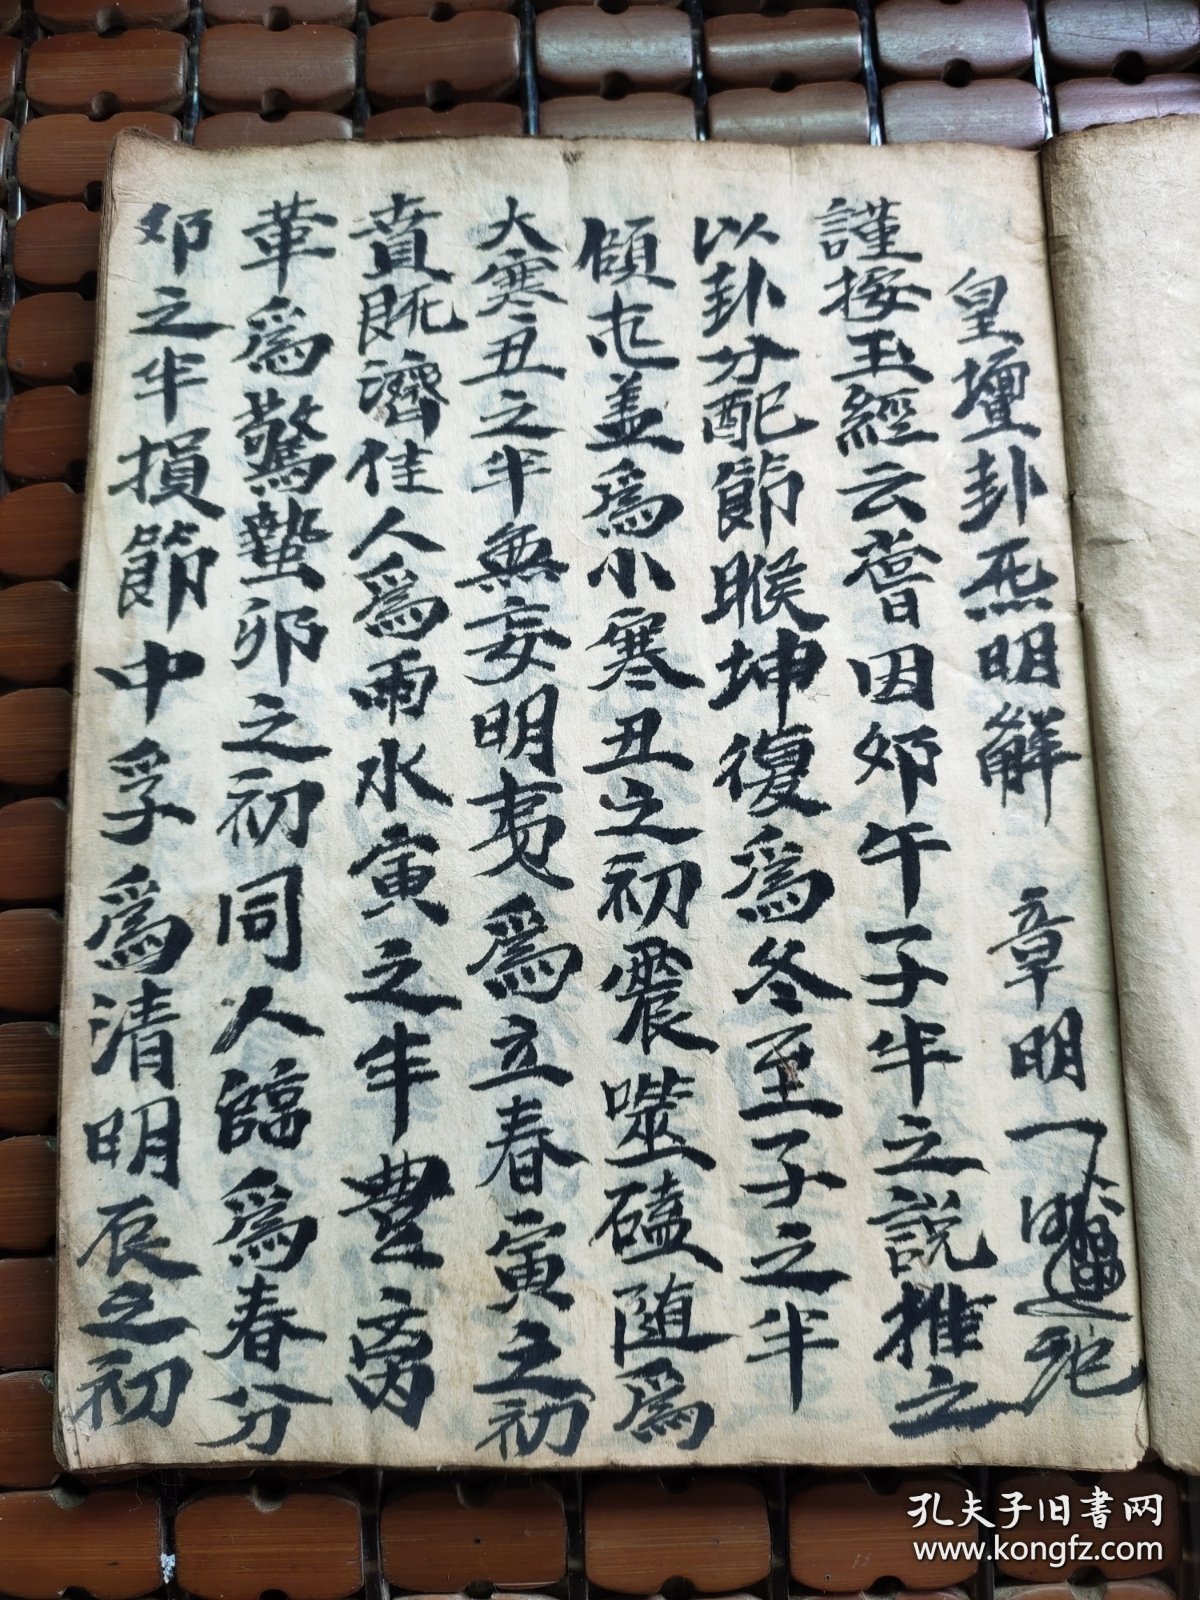 皇壇卦炁明解 章明一
謹按玉經云嘗因邜午子半之說推之
以卦分配節睺坤復爲冬至子之半
頤屯益爲小寒丑之初震噬磕随爲
大寒丑之半無妄明夷爲立春寅之初
賁既濟佳人爲雨水寅之半豊离
革爲驚蟄卯之初同人臨爲春分
邜之半損節中孚爲清明辰之初
孔夫子旧書网
www.kongfz.com